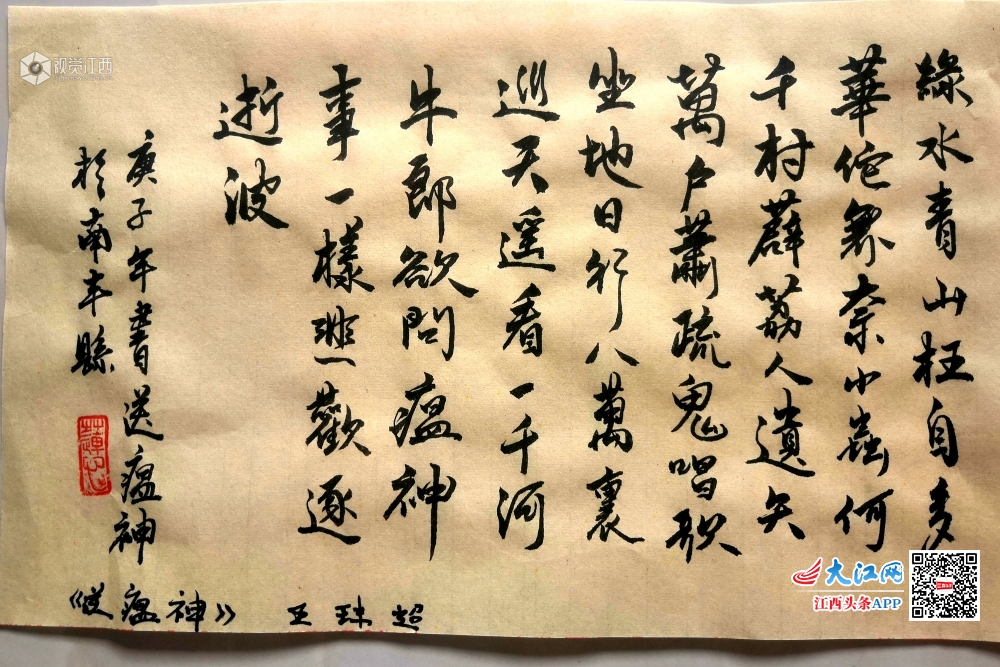 綠水青山枉自多
華佗無奈小蟲何
千村薜荔人遺矢
萬戶蕭疏鬼唱歌
坐地日行八萬裏
巡天遥看一千河
牛郎欲問瘟神
事一樣悲歡逐
逝波
庚子年書送瘟神
於南丰縣
《送瘟神》 王珠超
视觉江西
大江网
江西头条APP